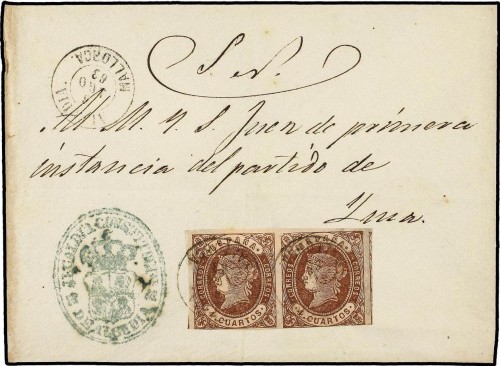 S. N.
Al M. Y. S. Juez de primera
instancia del partido de
Ynca.
MALLORCA.
63
ESPAÑA ESPAÑA
CORREOS CORREOS
4 CUARTOS 4 CUARTOS